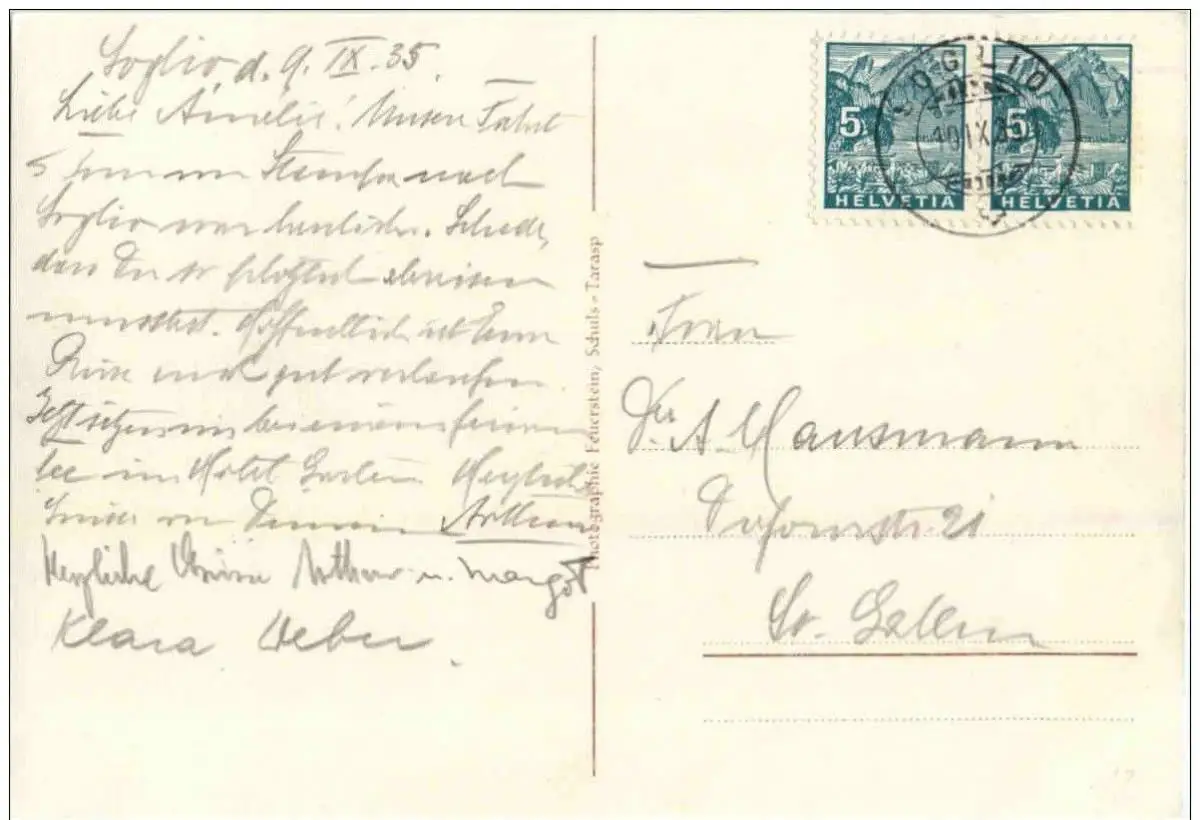 Soglio, d. 9. IX. 35.
Liebe Amélie! Unsere Fahrt
von Stampa nach
Soglio war herrlich. Schade,
dass Du so
musstest. Hoffentlich ist Eure
Reise noch gut verlaufen.
Jetzt sitzen wir bei einem
im Hotel Herzliche
Grüsse von Deinem Arthur
Herzliche Grüsse Arthur u. Margot
Klara Weber.
Photographie Feuerstein, Schuls-Tarasp
5 HELVETIA
5 HELVETIA
SOGLIO
10.IX.35
Frau
Dr. A. Hausmann
21
St. Gallen